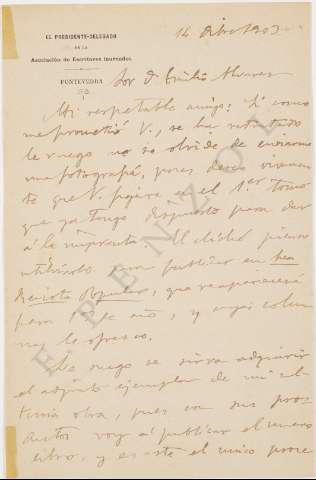 14 Dbre 1903
EL PRESIDENTE-DELEGADO
DE LA
Asociación de Escritores laureados
PONTEVEDRA
Sor Dn Emilio Alvarez
Mi respetable amigo: Si como
me prometió V., se ha retratado
le ruego no se olvide de enviarme
una fotografía, pues deseo vivamen
te que V. figure en el 1er tomo
que ya tengo dispuesto para dar
á la imprenta. El cliché pienso
utilizarlo para publicar en
Revista Popular, que reaparecerá
para 1º de año, y cuyas colum
nas le ofrezco.
Le ruego se sirva adquirir
el adjunto ejemplar de mi úl-
tima obra, pues con sus pro-
ductos voy á publicar el nuevo
libro, y es este el único proce
E PENZOL